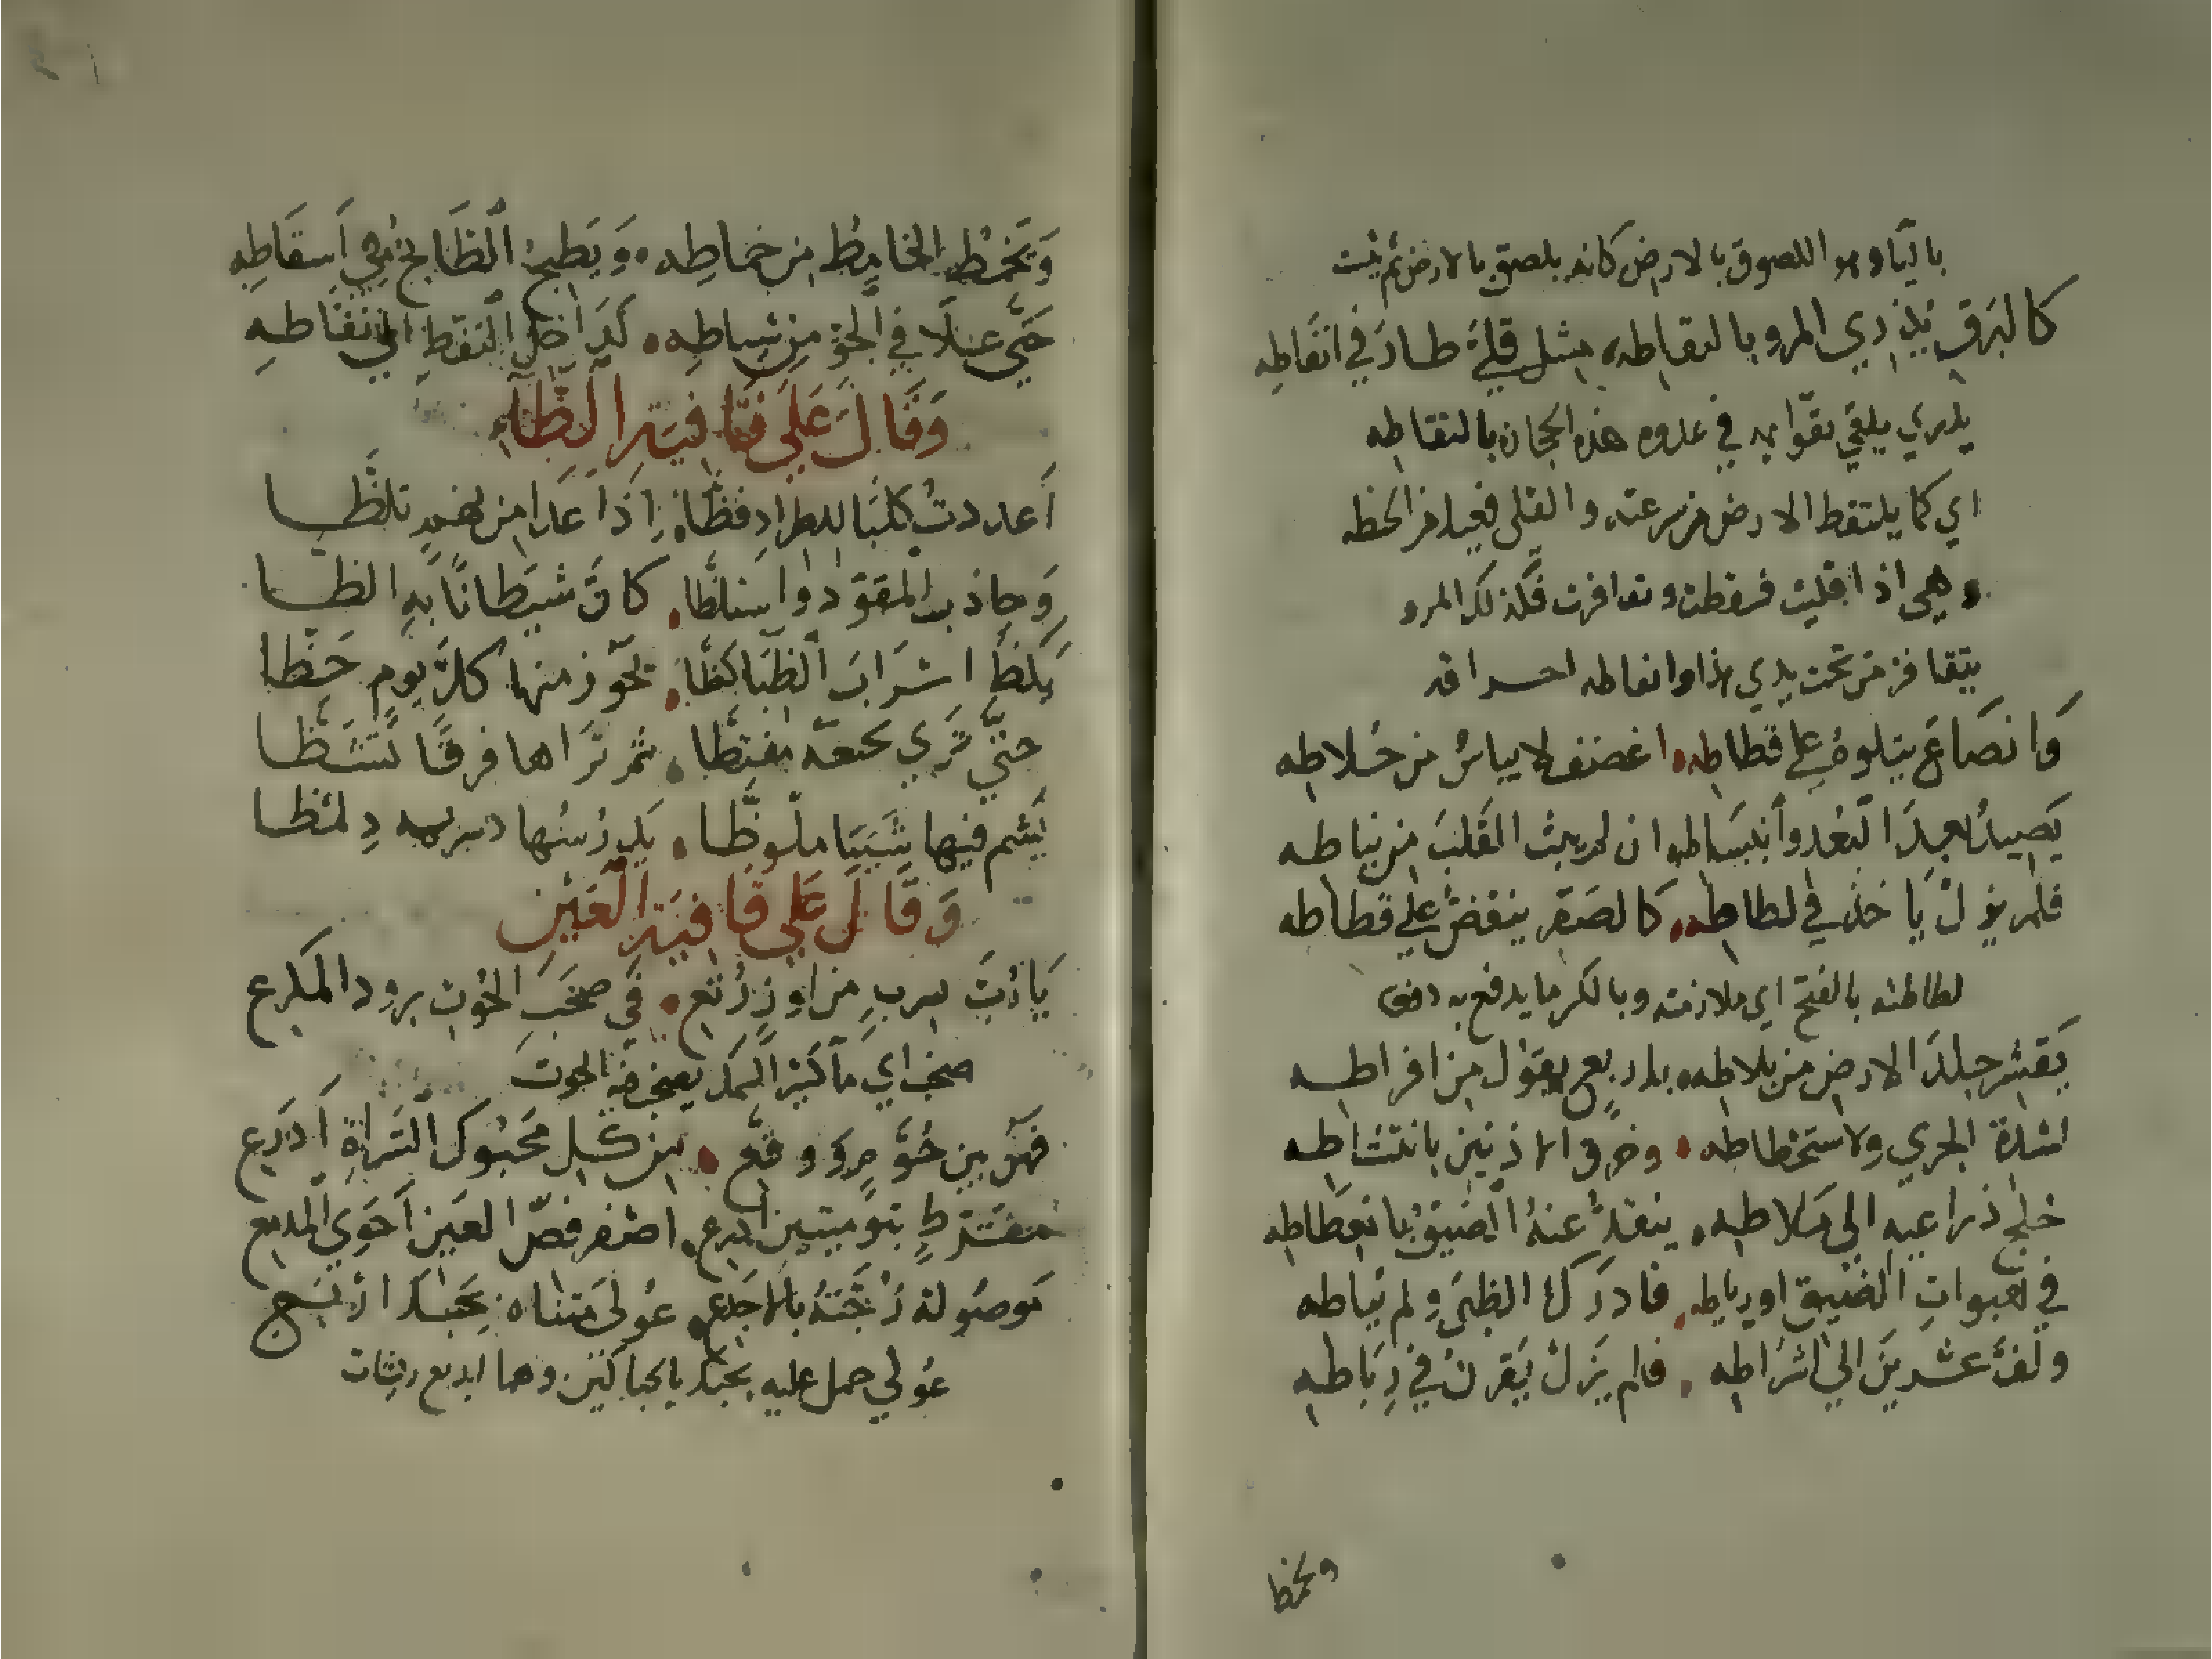 بالتاء وهو اللصوق بالارض كانه يلصق بالارض ثم يثبت
كالبَرق يُذري المرو بالتقاطه، مثل قلىً طارَ في انفاطِه
يذري يلقي بقوايمه في عدوه هذه الحجارة بالتقاطه
اي كما يلتقط الارض من سرعته والقلى فعيل من
وهي اذا قليت فرقعت وتقافزت فكذلك المرو
يتقافز من تحت يدي هذا وانفاطه احتراقه
وَانصَاعَ يتلوه على قطاطه، اغضف لا يياس من خلاطه
يَصِيدُ بعدَ البُعد وأنبسَاطه ان لم يبت القلبَ من نياطه
فلم يزل ياخذ في لطاطه، كالصَقر ينقض على قطاطه
لطاطه بالفتح اي ملازمته وبالكسر ما يدفع به
يَقشر جلدَ الارض من بلاطه، باربع يقول من افراطه
لشدة الجري ولاستحطاطه، وخرق الاذنين بانتشاطه
خلج ذراعيه الى ملاطه، ينقدُّ عنهُ الضيقُ بانعطاطه
في هبوات الضيق اورياطه، فادرَكَ الظبي ولم يباطه
ولفَّ عشرينَ الى اشراطه، فلم يزل يَقرنُ في رِبَاطه
وتخمط
وَتخمُط الخامِطُ من خماطِه، وَيَطبخُ الطَابخُ في اَسقَاطِه
حَتى عَلَا في الجوّ من شياطِه، كدَاخل النفطِ الى نفّاطهِ
وَقَالَ عَلَى قَافِيَةِ الظَّاءِ
اَعددتُ كلبًا للطرادِ فظّا، اِذَا عَدَا من نهمٍ تلظَّا
وَجاذبَ المقوَد واستلظّا، كانَّ شيطانًا بهِ الظا
يَكظُّ اسرَابَ الظبَا كظّا، تحوز منها كلَّ يومٍ حَظّا
حتّى تَرى مفتظّا، ثم تَرَاها فرقًا تشظّا
يَشم فيها
وَقَالَ عَلَى قَافِيَةِ الْعَيْنِ
يَارُبَ سربٍ من اوزٍ رُتّع، في صخبَ الحُوت برود المكرع
صخب اي ماكثير السمك يصخب فيه الحوت
فهنَّ بين حُوَّم ووقّع، من كل محبُوك السَّراةِ اَدرَع
بتومتين اَدرع، اصفر فصّ العَين اَحوَي المدمع
مَوصُولة زُجّتهُ بالاجدع، عُولى متناه بحبك اربع
عُولي حمل عليه بحبك يا وهما اربع